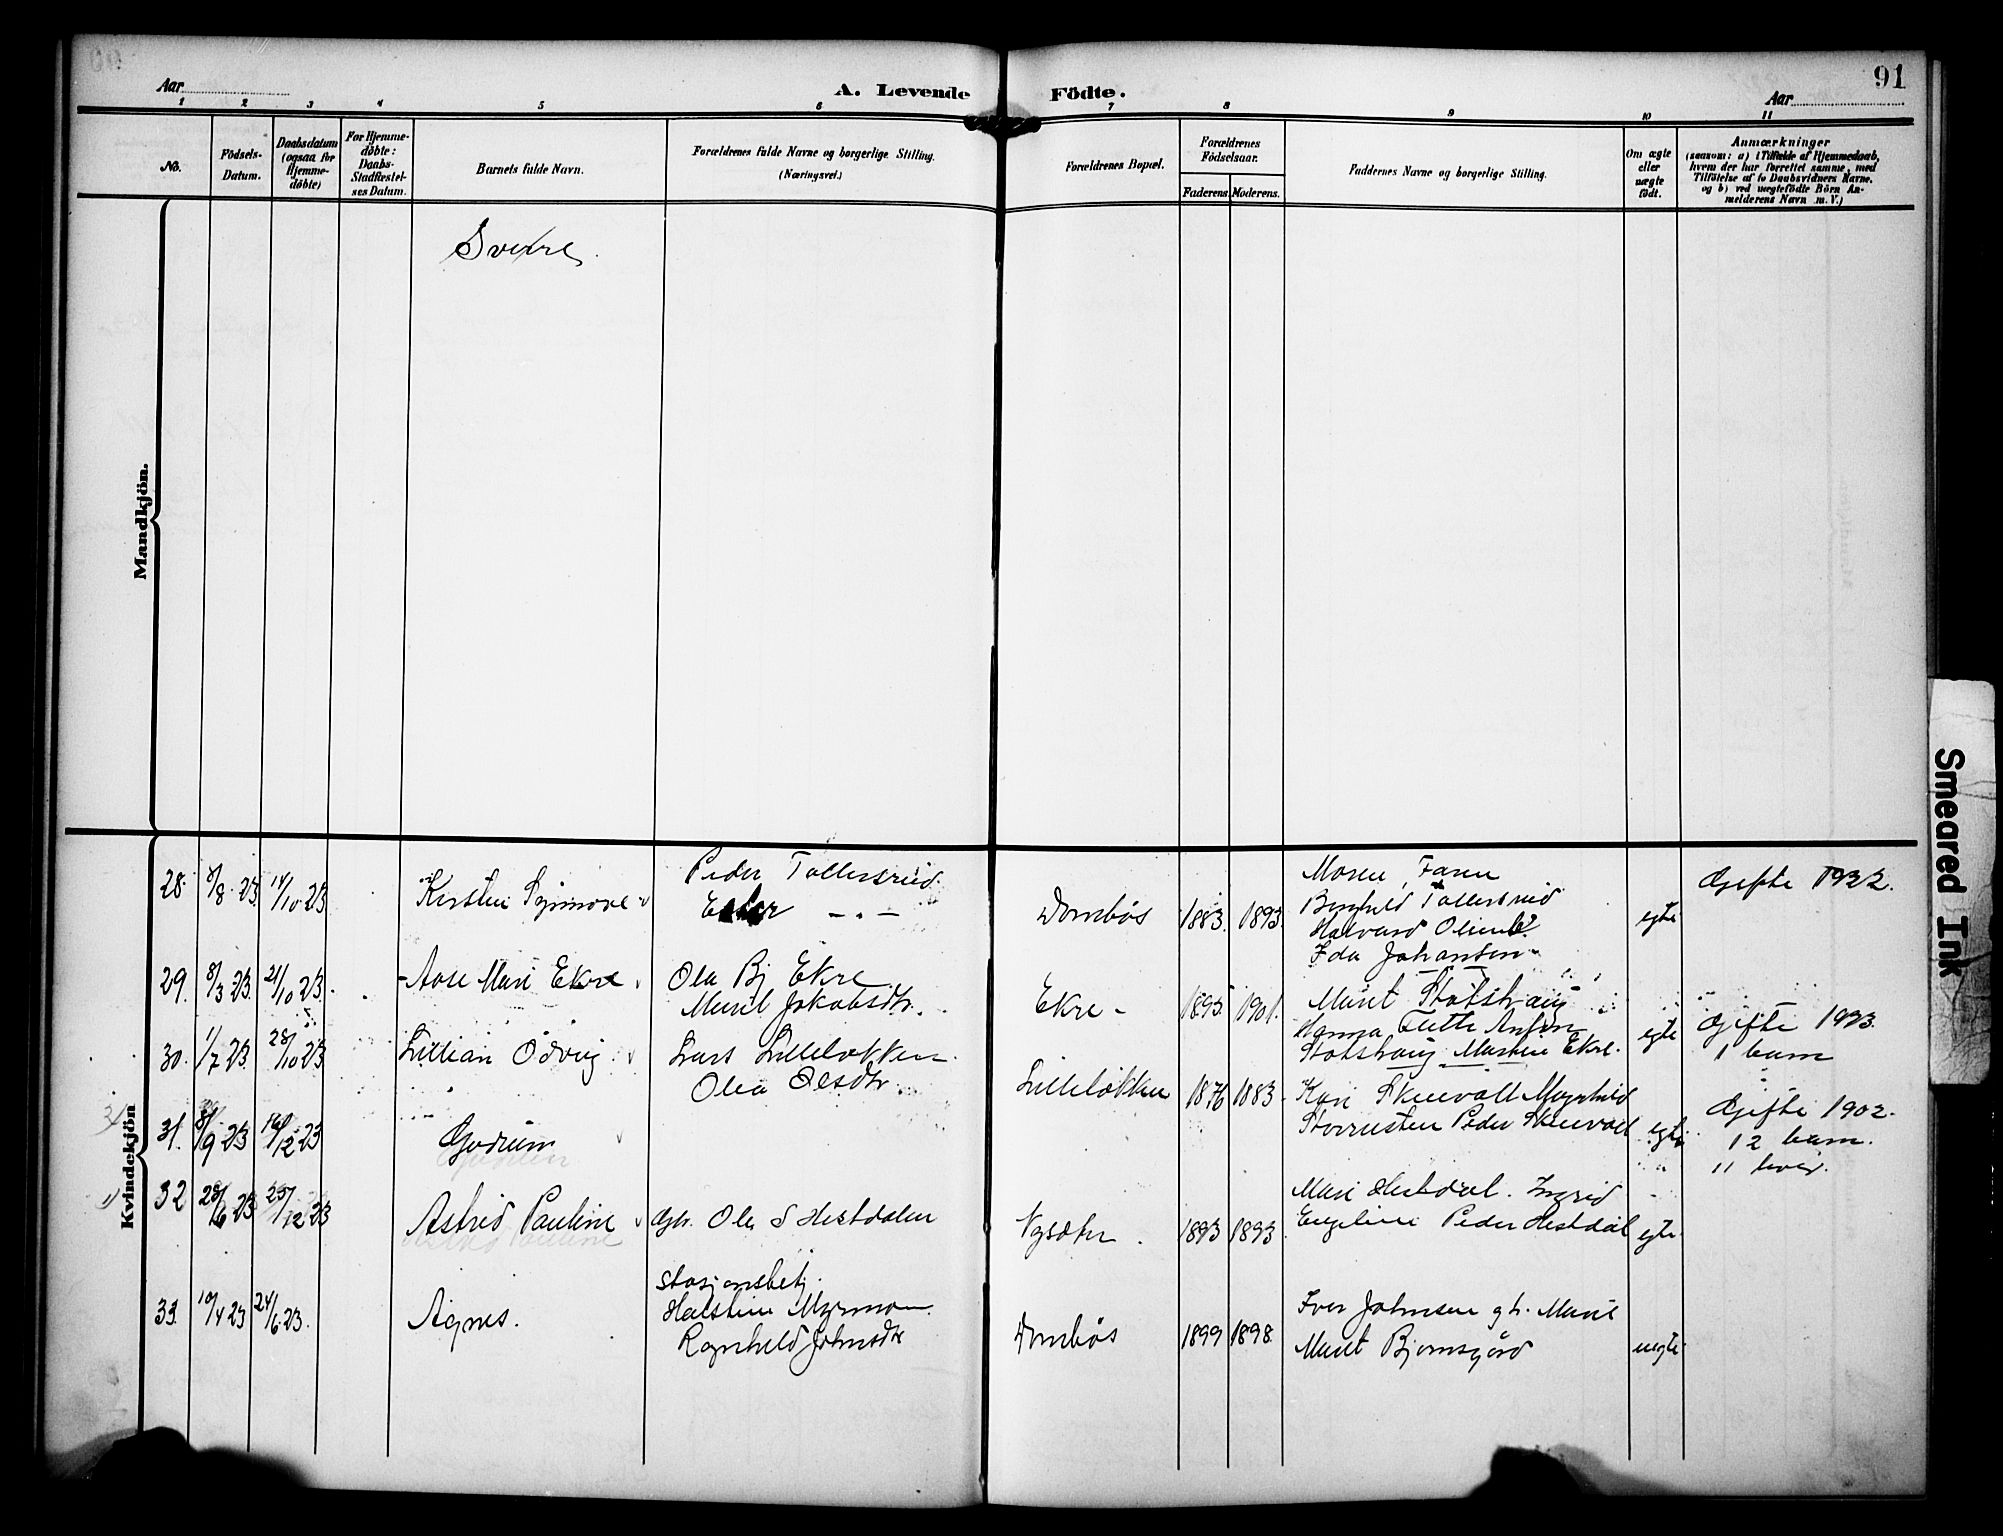 91
Aar
A. Levende Födte.
Aar
1 2 3 4 5 6 7 8 9 10 11
No.
Födsels-Datum.
Daabsdatum (ogsaa for Hjemme-döbte)
For Hjemme-döbte: Daabs-Stadfæstel-ses Datum.
Barnets fulde Navn.
Forældrenes fulde Navne og borgerlige Stilling. (Næringsvei.)
Forældrenes Bopæl.
Forældrenes Födselsaar.
Faderens. Moderens.
Faddernes Navne og borgerlige Stilling.
Om ægte eller uægte födt.
Anmærkninger
(saasom: a) i Tilfælde af Hjemmedaab, hvem der har forrettet samme, med Tilföielse af to Daabsvidners Navne, og b) ved uægtefödte Börn An-melderens Navn m. V.)
Mandkjön.
Sverre
Kvindekjön
28. 14/10 23 Kirsten Synnøve Peder Tollersrud Dombås 1883. 1893. egte Gifte 1922.
Halvard
Ida Johansen
29. 8/3 23 21/10 23 Aase Mari Ekre Ola Bj Ekre
Marit Jakobsdtr. Ekre 1895 1901. Marit Stølshaug
Hanna Anton
Stølshaug Martin Ekre. egte Gifte 1923.
1 barn
30. 1/7 23 28/10 23 Lillian Odvig Lars Lilleløkken
Olea Olsdtr. Lilleløkken 1876 1883 Kari
Peder egte Gifte 1902.
12 barn.
11 lever.
31. 23 12 23 Gudrun
32 23 12 23 Astrid Pauline Gbr. Ola S Hestdalen Nysæter 1893 1893 Mari Hestdal. Ingrid
Engeline Peder Hestdal egte
33 10/4 23 24/6 23. Agnes. Stasjonsbetj.
Halstein
Ragnhild Johnsdtr Dombås 1899 1898 Iver Johnsen gb. Marit
Marit Bjørnsgård uegte
Smeared Ink